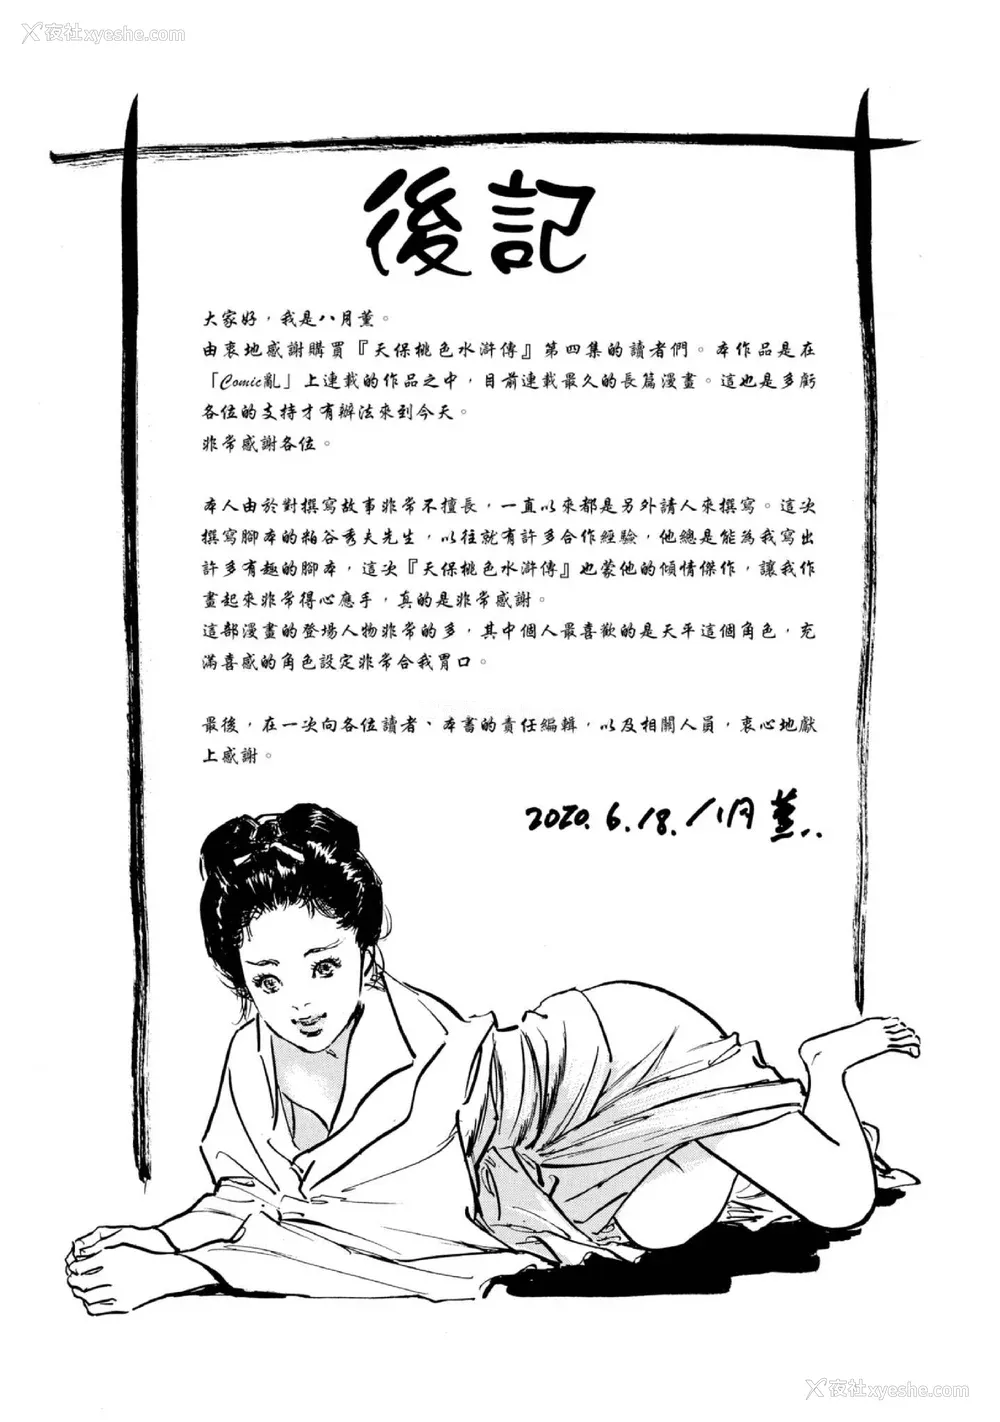 夜社xyeshe.com
後記
大家好，我是八月薫。
由衷地感謝購買『天保桃色水滸傳』第四集的讀者們。本作品是在
「Comic亂」上連載的作品之中，目前連載最久的長篇漫畫。這也是多虧
各位的支持才有辦法來到今天。
非常感謝各位。
本人由於對撰寫故事非常不擅長，一直以來都是另外請人來撰寫。這次
撰寫腳本的粕谷秀夫先生，以往就有許多合作經驗，他總是能為我寫出
許多有趣的腳本，這次『天保桃色水滸傳』也蒙他的傾情傑作，讓我作
畫起來非常得心應手，真的是非常感謝。
這部漫畫的登場人物非常的多，其中個人最喜歡的是天平這個角色，充
滿喜感的角色設定非常合我胃口。
最後，在一次向各位讀者、本書的責任編輯，以及相關人員，衷心地獻
上感謝。
2020.6.18.八月薫..
夜社xyeshe.com